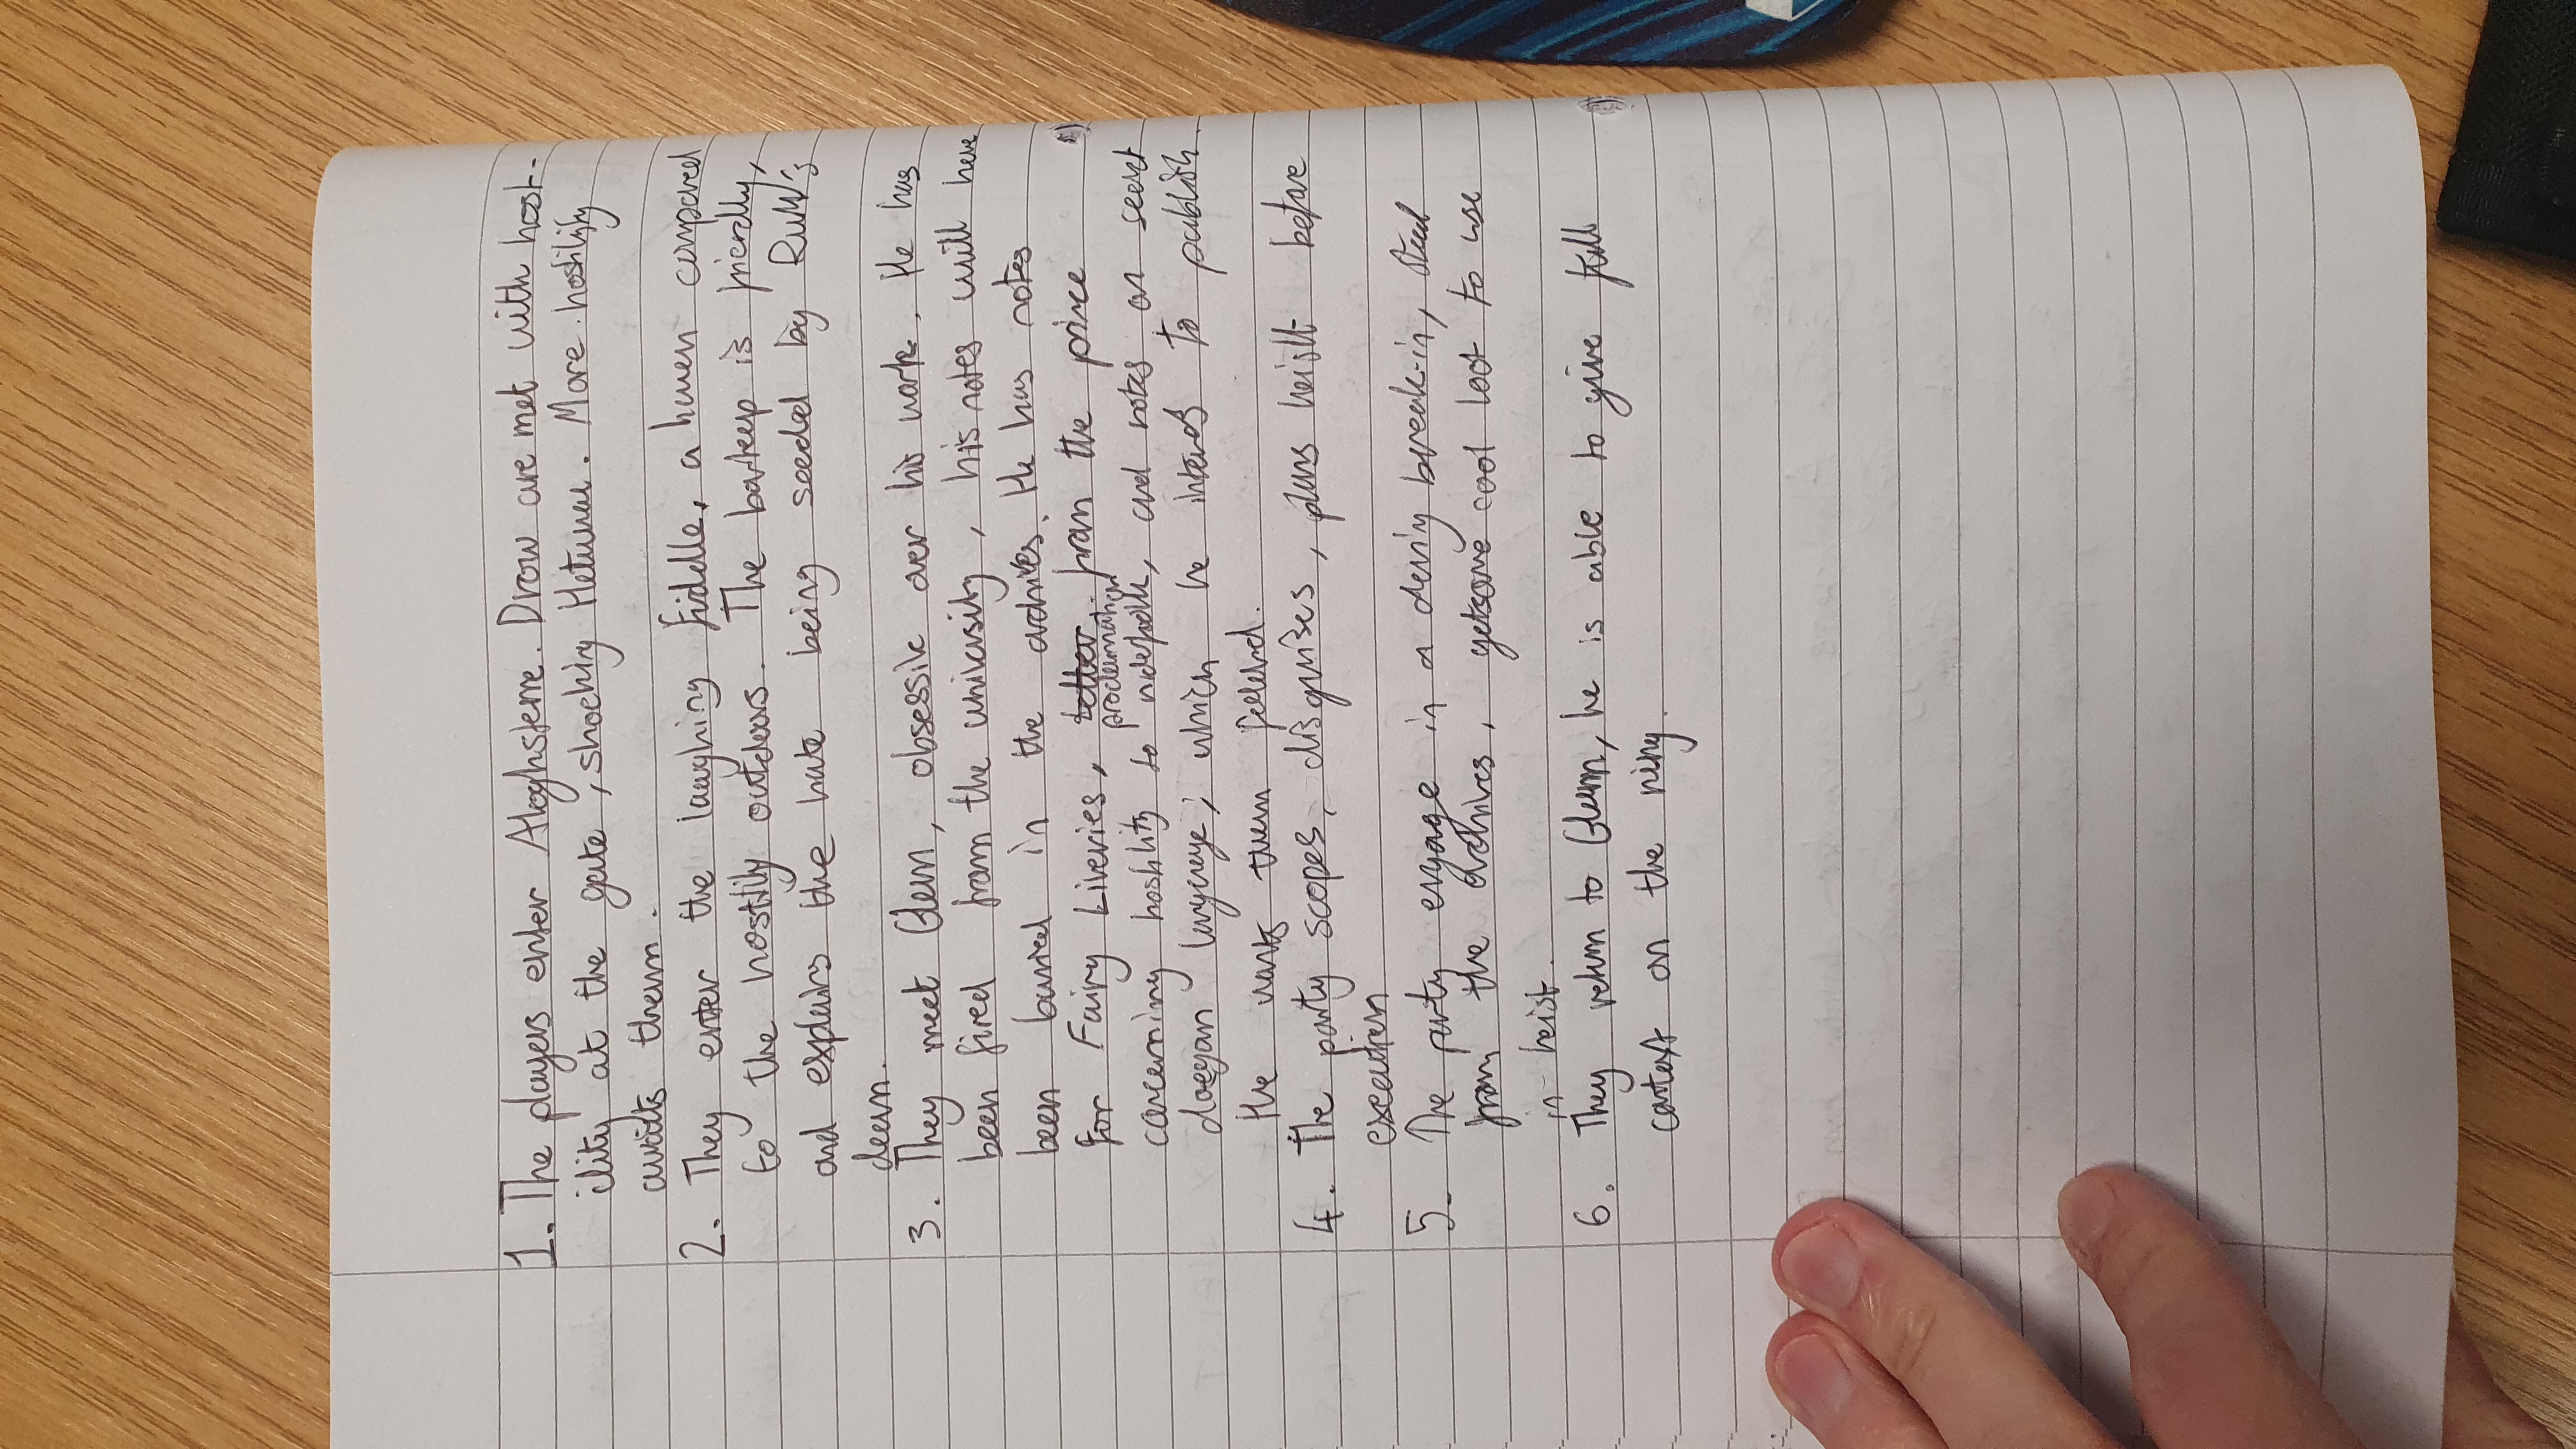 1. The players enter Aloghsterre. Drow are met with host-
ility at the gate, shocking More hostility
awaits them.
2. They enter the laughing Fiddle, a haven compared
to the hostility outdoors. The barkeep is friendly,
and explains the hate being seeded by RUW's
dean.
3. They meet Glenn, obsessive over his work. He has
been fired from the university, his notes will have
been buried in the archives. He has notes
for Fairy Liveries, letter from the prince
proclamation
concerning hostility to and notes on secret
language, which he intends to publish.
He wants them
4. The party scopes, disguises, plans heist before
execution
5. The party engage in a daring break-in, steal
from the archives, get some cool loot to use
in-heist.
6. They return to Glenn, he is able to give full
context on the ring.